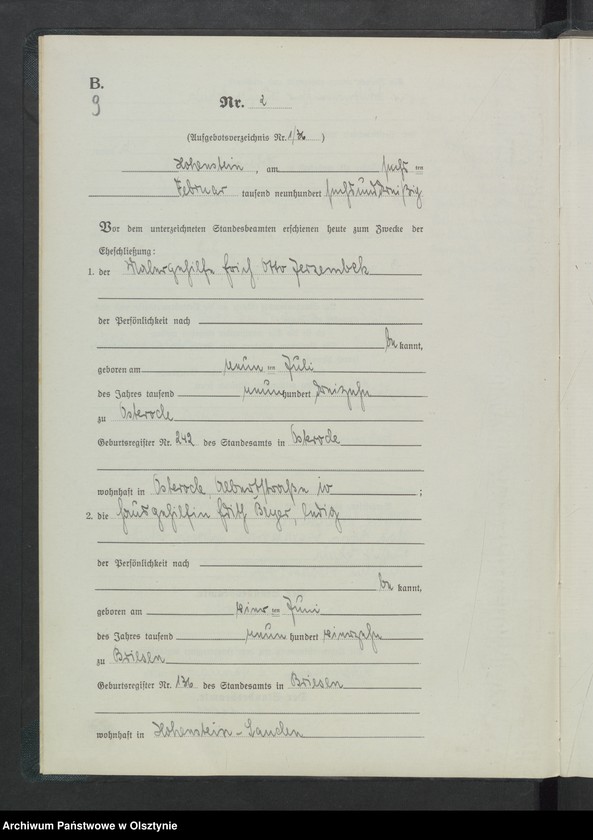 B.
9
Nr. 2
(Aufgebotsverzeichnis Nr. 1/36)
Hohenstein, am sechs ten
Februar tausend neunhundert sechsunddreißig
Vor dem unterzeichneten Standesbeamten erschienen heute zum Zwecke der
Eheschließung:
1. der Malergehilfe Erich Otto Jerzembek
der Persönlichkeit nach
be kannt,
geboren am neun ten Juli
des Jahres tausend neun hundert dreizehn
zu Osterode
Geburtsregister Nr. 242 des Standesamts in Osterode
wohnhaft in Osterode, Albertstraße 10;
2. die Hausgehilfin Edith Beyer, ledig
der Persönlichkeit nach
be kannt,
geboren am vier ten Juni
des Jahres tausend neun hundert vierzehn
zu Briesen
Geburtsregister Nr. 136 des Standesamts in Briesen
wohnhaft in Hohenstein-
Archiwum Państwowe w Olsztynie